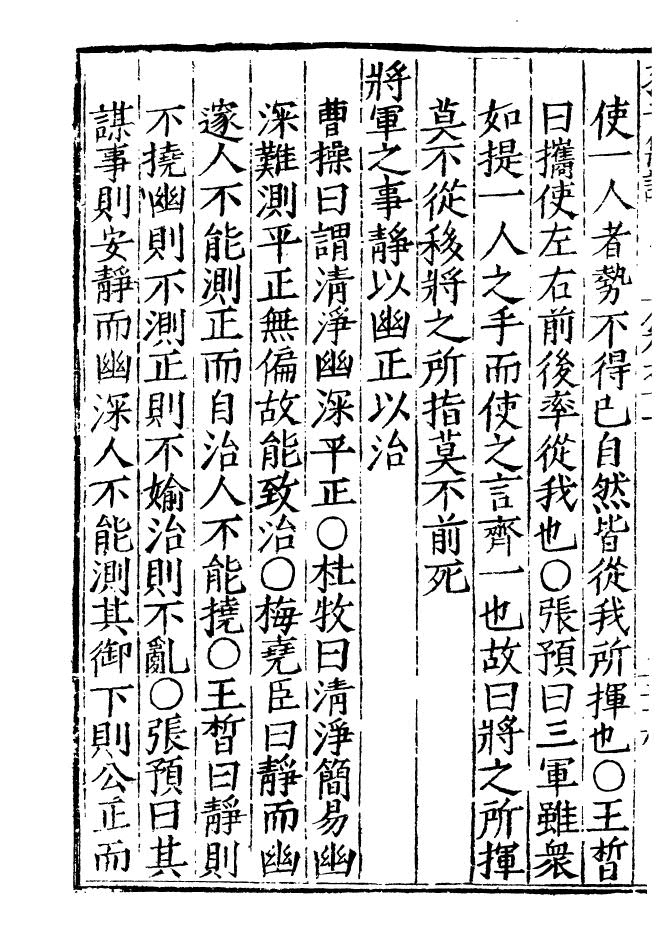 使一人者勢不得已自然皆從我所揮也○王晳
曰攜使左右前後率從我也○張預曰三軍雖衆
如提一人之手而使之言齊一也故曰將之所揮
莫不從移將之所指莫不前死
將軍之事靜以幽正以治
曹操曰謂清淨幽深平正○杜牧曰清淨簡易幽
深難測平正無偏故能致治○梅堯臣曰靜而幽
邃人不能測正而自治人不能撓○王晳曰靜則
不撓幽則不測正則不媮治則不亂○張預曰其
謀事則安靜而幽深人不能測其御下則公正而